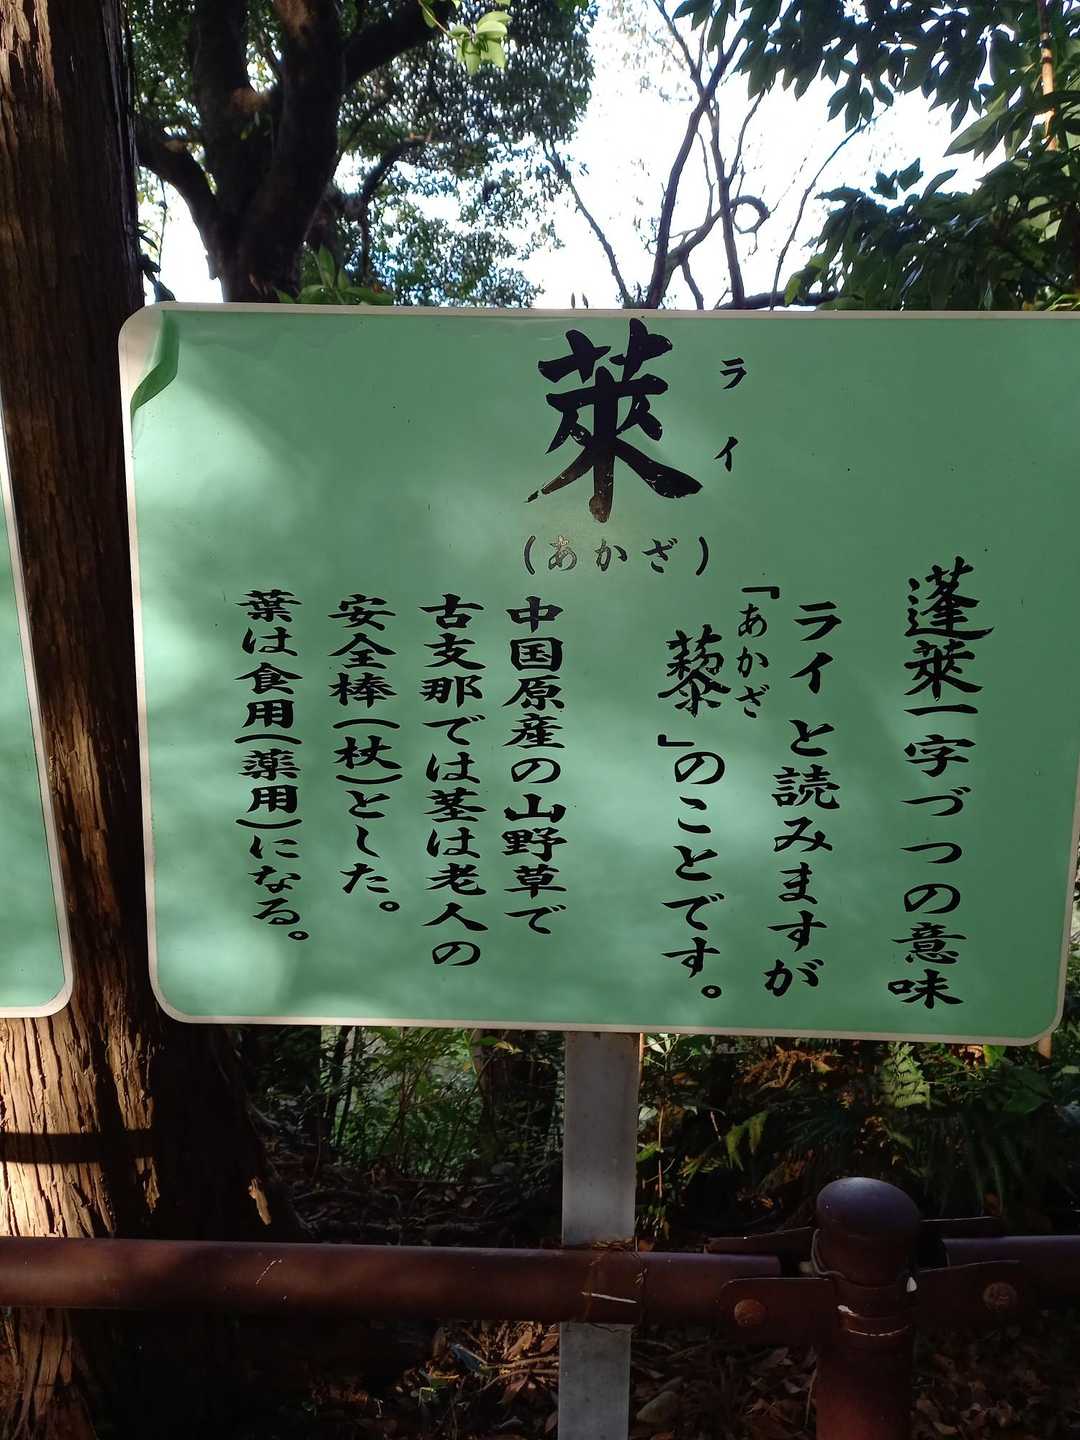 萊
ライ
(あかざ)
蓬萊一字づつの意味
ライと読みますが
「藜」のことです。
あかざ
中国原産の山野草で
古支那では茎は老人の
安全棒(杖)とした。
葉は食用(薬用)になる。